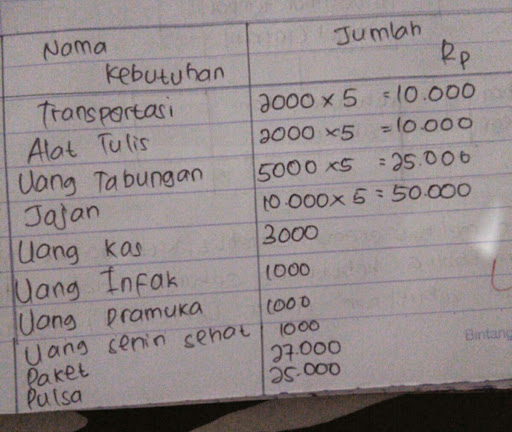 Nama Kebutuhan Jumlah Rp
Transportasi 2000 x 5 = 10.000
Alat Tulis 2000 x 5 = 10.000
Uang Tabungan 5000 x 5 = 25.000
Jajan 10.000 x 5 = 50.000
Uang kas 3000
Uang Infak 1000
Uang pramuka 1000
Uang senin sehat 1000
Paket 27.000
Pulsa 25.000
Bintang